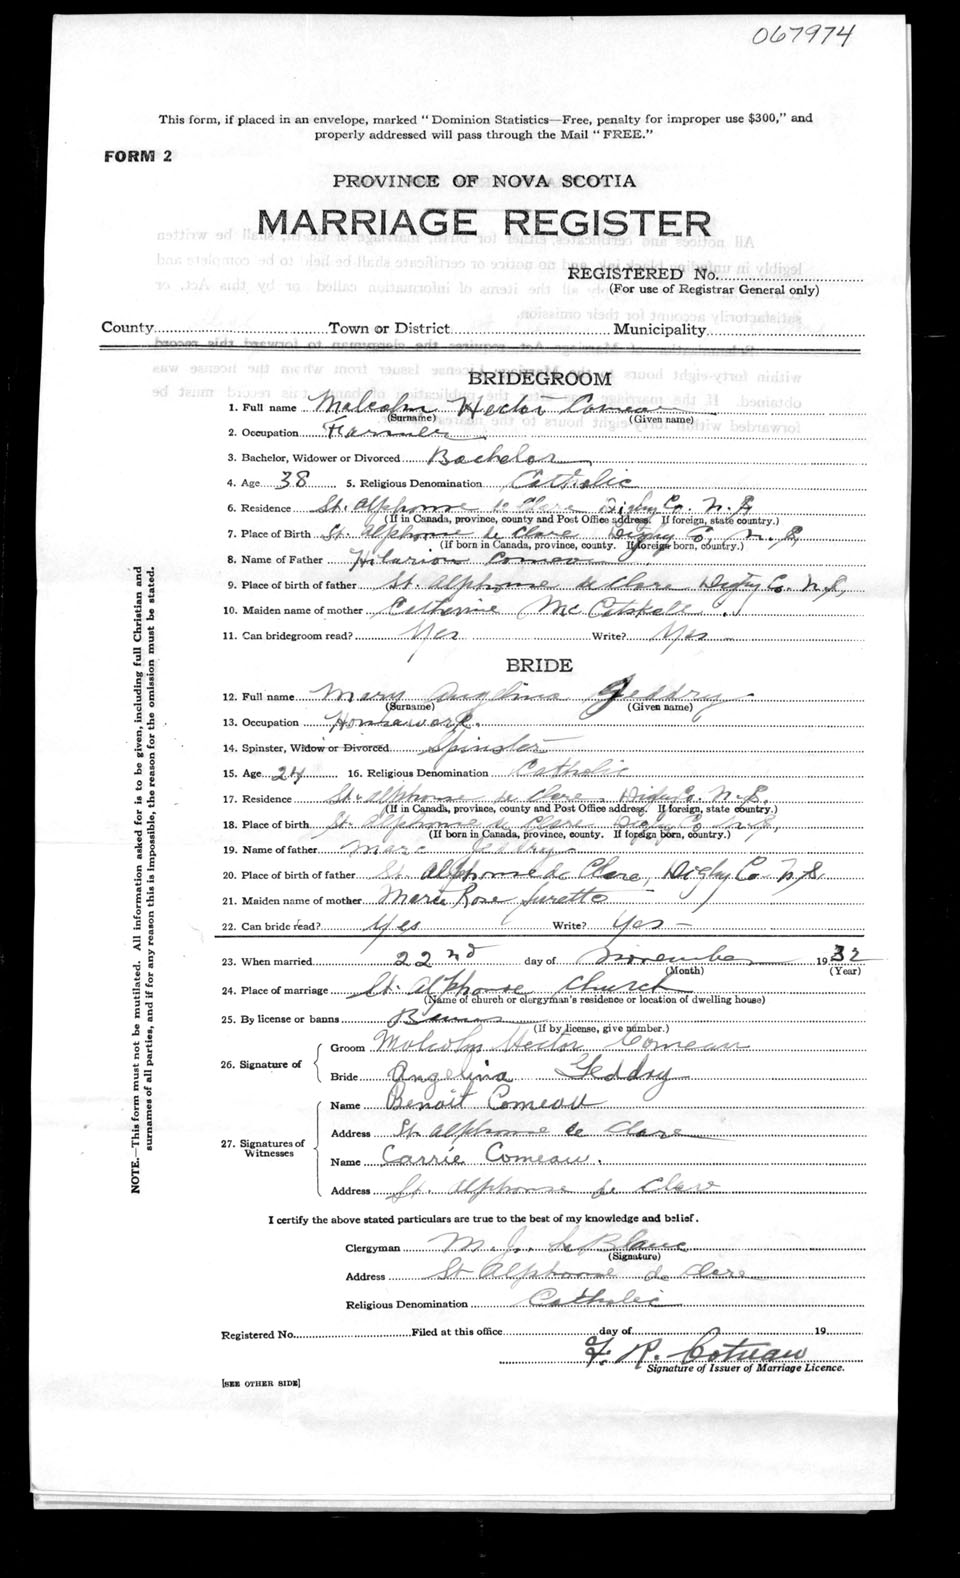 067974
This form, if placed in an envelope, marked "Dominion Statistics—Free, penalty for improper use $300," and
properly addressed will pass through the Mail "FREE."
FORM 2
PROVINCE OF NOVA SCOTIA
MARRIAGE REGISTER
REGISTERED No.
(For use of Registrar General only)
County Town or District Municipality
BRIDEGROOM
1. Full name Malcolm Hector Comeau
(Surname) (Given name)
2. Occupation Farmer
3. Bachelor, Widower or Divorced Bachelor
4. Age 38 5. Religious Denomination Catholic
6. Residence St. Alphonse de Clare Digby Co. N.S.
(If in Canada, province, county and Post Office address. If foreign, state country.)
7. Place of Birth St. Alphonse de Clare Digby Co. N.S.
(If born in Canada, province, county. If foreign born, country.)
8. Name of Father Hilarion Comeau
9. Place of birth of father St. Alphonse de Clare Digby Co. N.S.
10. Maiden name of mother Catherine Mc
11. Can bridegroom read? Yes Write? Yes
BRIDE
12. Full name Mary Angelina Geddry
(Surname) (Given name)
13. Occupation Housework.
14. Spinster, Widow or Divorced Spinster
15. Age 24 16. Religious Denomination Catholic
17. Residence St. Alphonse de Clare, Digby Co. N.S.
(If in Canada, province, county and Post Office address. If foreign, state country.)
18. Place of birth St. Alphonse de Clare Digby Co. N.S,
(If born in Canada, province, county. If foreign born, country.)
19. Name of father Marc Geddry
20. Place of birth of father St. Alphonse de Clare, Digby Co N.S.
21. Maiden name of mother Marie Rose Surette
22. Can bride read? Yes Write? Yes
23. When married 22nd day of November 1932
(Month) (Year)
24. Place of marriage St. Alphonse Church
(Name of church or clergyman's residence or location of dwelling house)
25. By license or banns Banns
(If by license, give number.)
26. Signature of
Groom Malcolm Hector Comeau
Bride Angelina Geddry
27. Signatures of Witnesses
Name Benoit Comeau
Address St. Alphonse de Clare
Name Carrie Comeau.
Address St. Alphonse de Clare
I certify the above stated particulars are true to the best of my knowledge and belief.
Clergyman M. J. LeBlanc
(Signature)
Address St Alphonse de Clare
Religious Denomination Catholic
Registered No. Filed at this office day of 19
F. R. Comeau
Signature of Issuer of Marriage Licence.
[SEE OTHER SIDE]
NOTE.—This form must not be mutilated. All information asked for is to be given, including full Christian and
surnames of all parties, and if for any reason this is impossible, the reason for the omission must be stated.